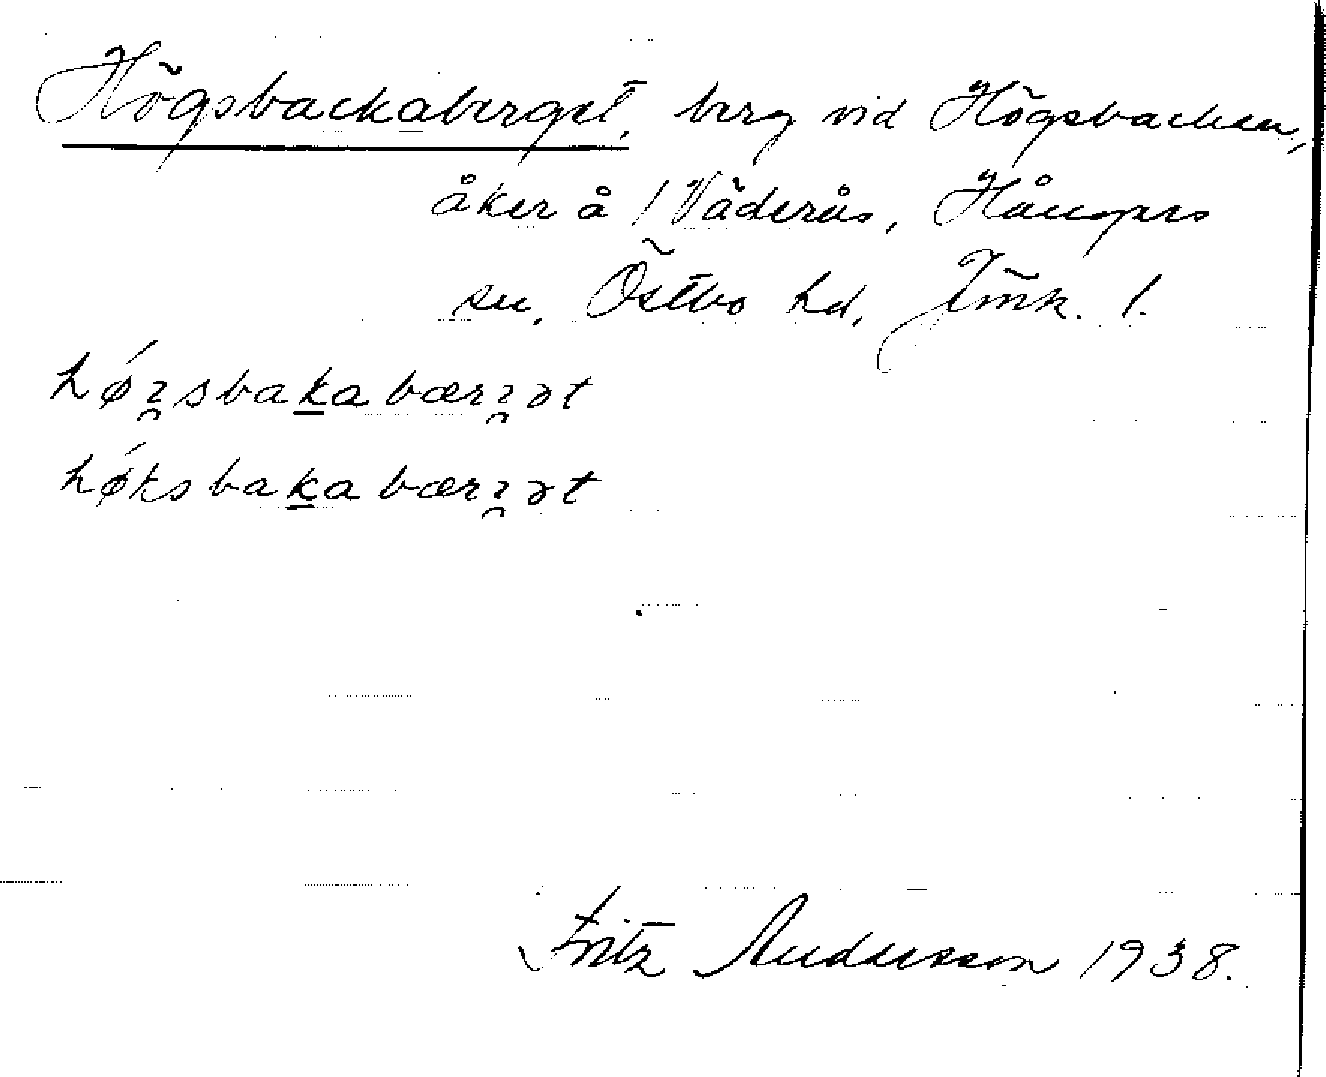 Högsbackaberget, berg vid Högsbacken,
åker å 1 Väderås, Hångers
sn, Östbo hd, Jmk. l.
hǿꝛsbaka bærꝛət
hǿksbaka bærꝛət
Fritz Andersson 1938.